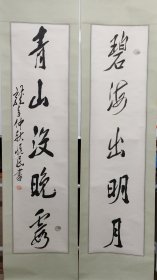 碧海出明月
青山没晚霞